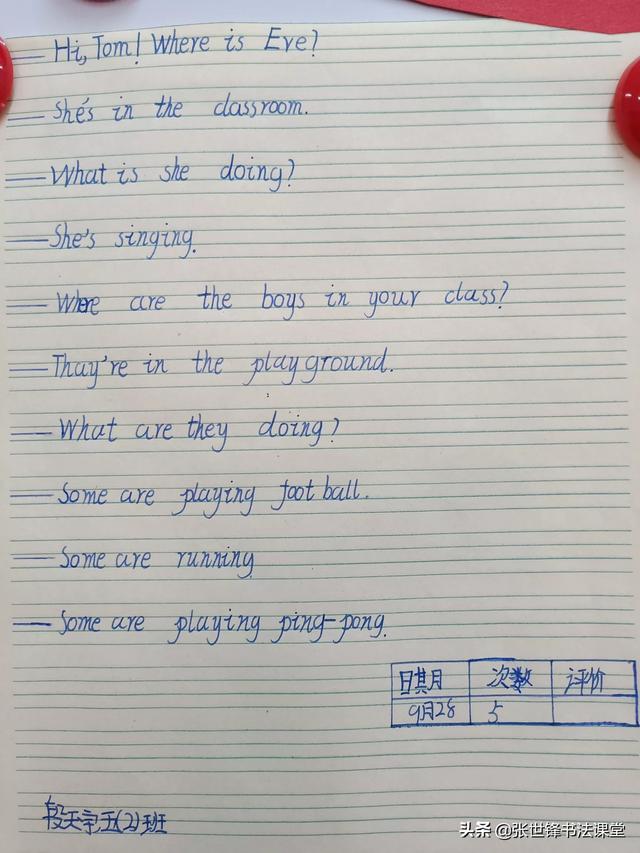 — Hi, Tom! Where is Eve?
— She's in the classroom.
— What is she doing?
— She's singing.
— Where are the boys in your class?
— Thay're in the playground.
— What are they doing?
— Some are playing foot ball.
— Some are running
— Some are playing ping-pong.
日期 次数 评价
9月28 5
段天宇五(2)班
头条 @张世锋书法课堂